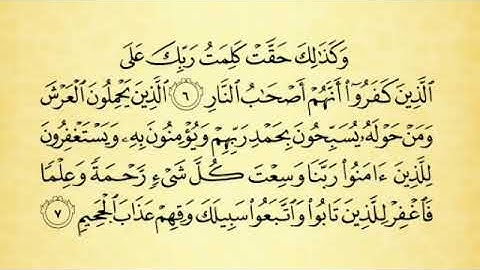 وَكَذَٰلِكَ حَقَّتْ كَلِمَتُ رَبِّكَ عَلَى
ٱلَّذِينَ كَفَرُوٓا۟ أَنَّهُمْ أَصْحَٰبُ ٱلنَّارِ ٦ ٱلَّذِينَ يَحْمِلُونَ ٱلْعَرْشَ
وَمَنْ حَوْلَهُۥ يُسَبِّحُونَ بِحَمْدِ رَبِّهِمْ وَيُؤْمِنُونَ بِهِۦ وَيَسْتَغْفِرُونَ
لِلَّذِينَ ءَامَنُوا۟ رَبَّنَا وَسِعْتَ كُلَّ شَىْءٍ رَّحْمَةً وَعِلْمًا
فَٱغْفِرْ لِلَّذِينَ تَابُوا۟ وَٱتَّبَعُوا۟ سَبِيلَكَ وَقِهِمْ عَذَابَ ٱلْجَحِيمِ ٧